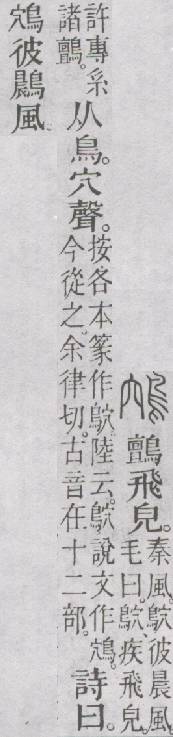 鴪 鸇飛皃。秦風。鴥彼晨風。毛曰。鴥、疾飛皃。
許專系諸鸇。从鳥。穴聲。按各本篆作鴥。陸云。鴥說文作鴪。今從之。余律切。古音在十二部。詩曰。
鴪彼鷐風